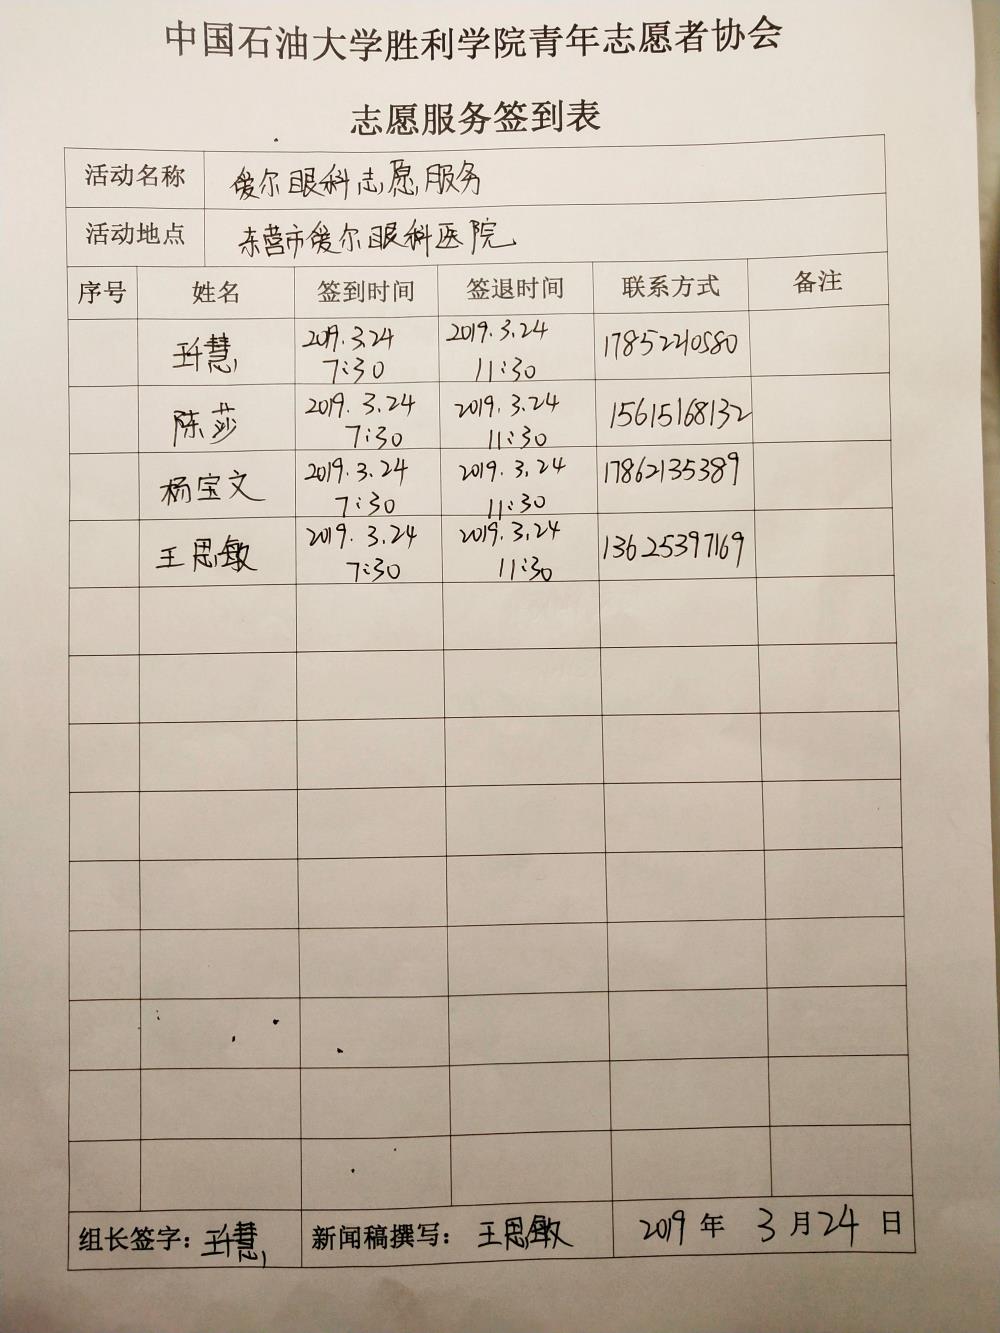 中国石油大学胜利学院青年志愿者协会
志愿服务签到表
活动名称 爱尔眼科志愿服务
活动地点 东营市爱尔眼科医院
序号 姓名 签到时间 签退时间 联系方式 备注
慧 2019.3.24 2019.3.24 17852210580
7:30 11:30
陈莎 2019.3.24 2019.3.24 15615168132
7:30 11:30
杨宝文 2019.3.24 2019.3.24 17862135389
7:30 11:30
王思敏 2019.3.24 2019.3.24 13625397169
7:30 11:30
组长签字: 慧 新闻稿撰写: 王思敏 2019年3月24日